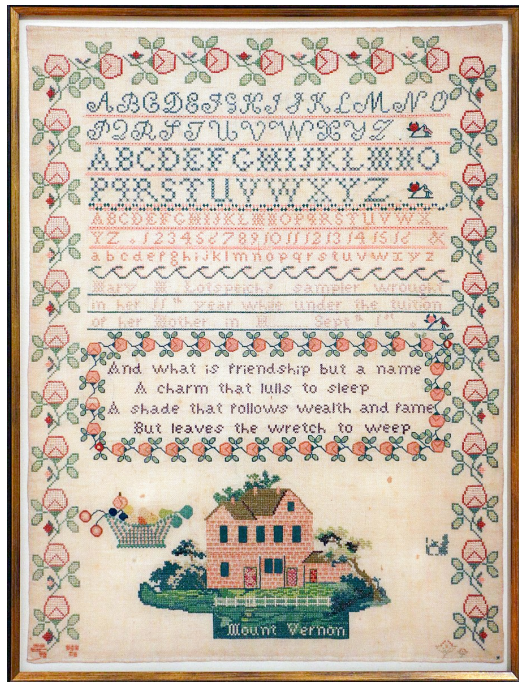 ABCDEFGHIJKLMNO
PQRSTUVWXYZ
ABCDEFGHIJKLMNO
PQRSTUVWXYZ
ABCDEFGHIJKLMNOPQRSTUVWX
YZ . 1 2 3 4 5 6 7 8 9 10 11 12 13 14 15 16 &
abcdefghijklmnopqrstuvwxyz
Mary Lotspeich sampler wrought
in her 11th year while under the tuition
of her Mother in Sept 1st
And what is friendship but a name
A charm that lulls to sleep
A shade that follows wealth and fame
But leaves the wretch to weep
Mount Vernon